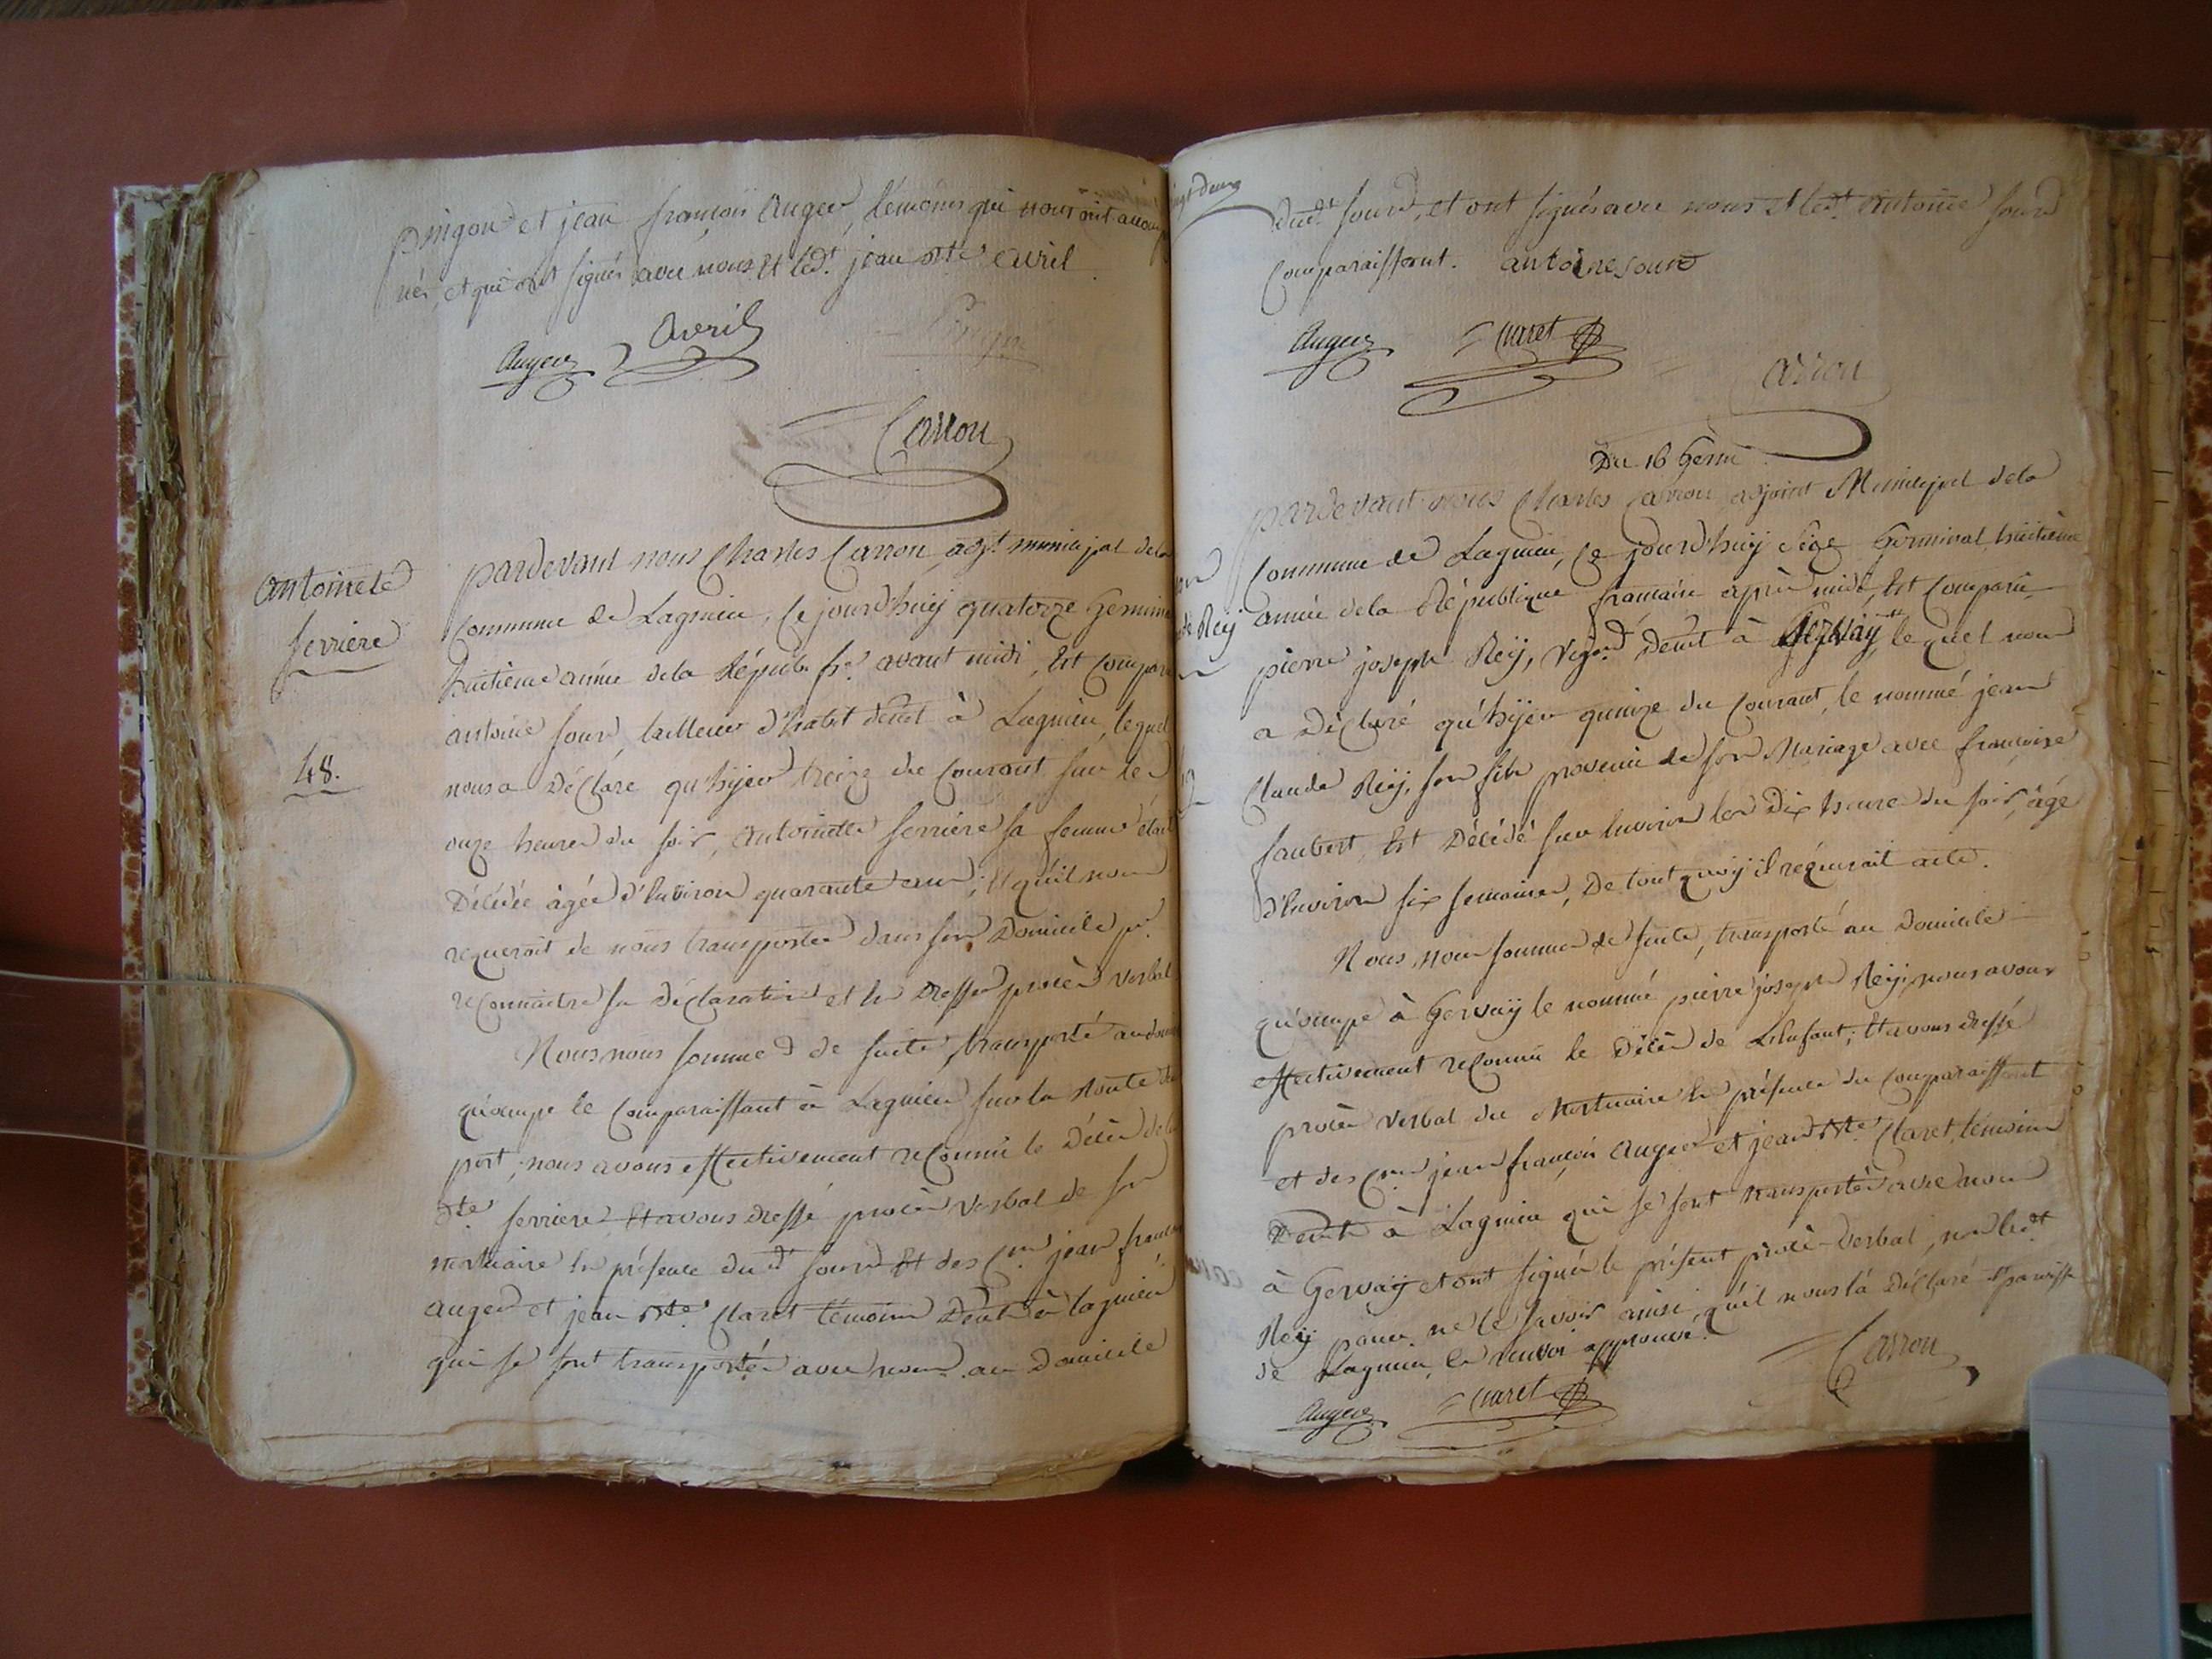 pingon et jean françois Auger, témoins qui nous ont accompa
nés, et qui ont signés avec nous Et led.t jean Bte avril
Auger Avril
Carron
Antoinete
ferriere
48.
pardevant nous Charles Carron, adj.t municipal dela
Commune de Lagnieu, Ce jourd'huij quatorze Germinal
huitieme année dela Répub. fr.e avant midi, Est Comparu
antoine sourd, tailleur d'habit demt à Lagnieu, lequel
nous a Déclaré qu'hijer treize du Courant sur les
onze heures du soir, Antoinette ferriere sa femme était
Décédée âgée d'Environ quarante ans; Et qu'il nous
requerait de nous transporter dans son Domicile pr.
reconnaitre sa Déclaration et En Dresser procès Verbal
Nous nous sommes de suite, transporté au dom
qu'occupe le Comparaissant à Lagnieu sur la Route du
port, nous avons effectivement reconnu le Décès de la
dte ferriere, Et avons dressé procès Verbal de son
mortuaire En présence dud.t sourd Et des C.ens jean francois
auger et jean Bte Claret témoins Demt à lagnieu
qui se sont transportés avec nous au Domicile
vingt deux
dud.t sourd, et ont signés avec nous Et led.t Antoine sourd
Comparaissant. antoine sourd
Auger Claret
Carron
Du 16 Germ.
pardevant nous Charles Carron adjoint Municipal dela
Commune de Lagnieu, Ce jourd'huij seize Germinal huitieme
année dela République francaise après midi, Est Comparu
pierre joseph Reij, Vigon Demt à Gervaij, lequel nous
a Déclaré qu'hijer quinze du Courant, le nommé jean
Claude Reij, son fils provenu de son Mariage avec francoise
Jaubert, Est Décédé sur Environ les Dix heures du soir, âgé
d'Environ six semaines, De tout quoij il réquerait acte.
Nous nous sommes de suite, transporté au Domicile
qu'occupe à Gervaij le nommé pierre joseph Reij, nous avons
effectivement reconnu le Décès de L'Enfant; Et avons dressé
procès Verbal du Mortuaire En présence du Comparaissant
et des C.ens jean françois Auger et jean Bte Claret, témoins
Demts à Lagnieu qui se sont transportés avec nous
à Gervaij et ont signés le présent procès-Verbal, non led.t
Reij pour ne le savoir ainsi qu'il nous l'a Déclaré
de Lagnieu, le renvoi approuvé.
Auger Claret Carron